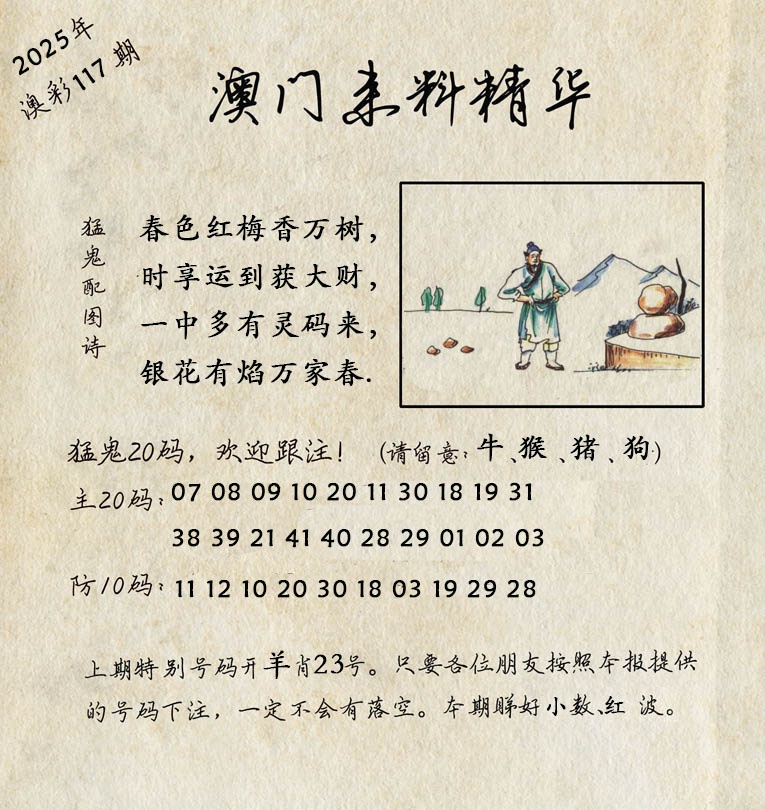 2025年
澳彩117期
澳门来料精华
猛鬼配图诗
春色红梅香万树，
时享运到获大财，
一中多有灵码来，
银花有焰万家春.
猛鬼20码，欢迎跟注！（请留意：牛、猴、猪、狗）
主20码：07 08 09 10 20 11 30 18 19 31
38 39 21 41 40 28 29 01 02 03
防10码：11 12 10 20 30 18 03 19 29 28
上期特别号码开羊肖23号。只要各位朋友按照本报提供
的号码下注，一定不会有落空。本期睇好小数、红 波。